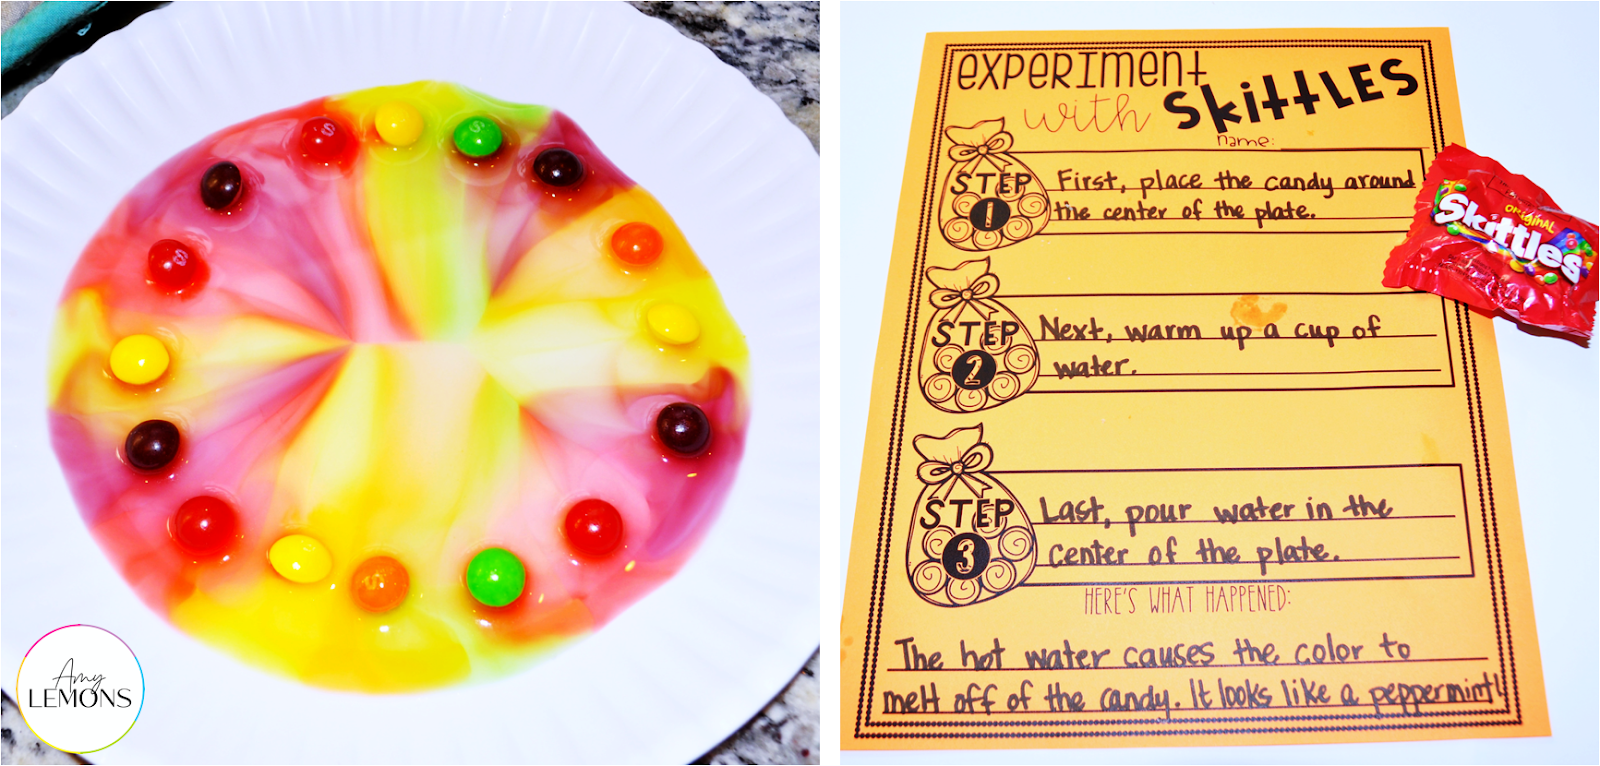 Amy
LEMONS
experiment
with Skittles
name:
STEP
1
First, place the candy around
the center of the plate.
ORIGINAL
Skittles
STEP
2
Next, warm up a cup of
water.
STEP
3
Last, pour water in the
center of the plate.
HERE'S WHAT HAPPENED:
The hot water causes the color to
melt off of the candy. It looks like a peppermint!